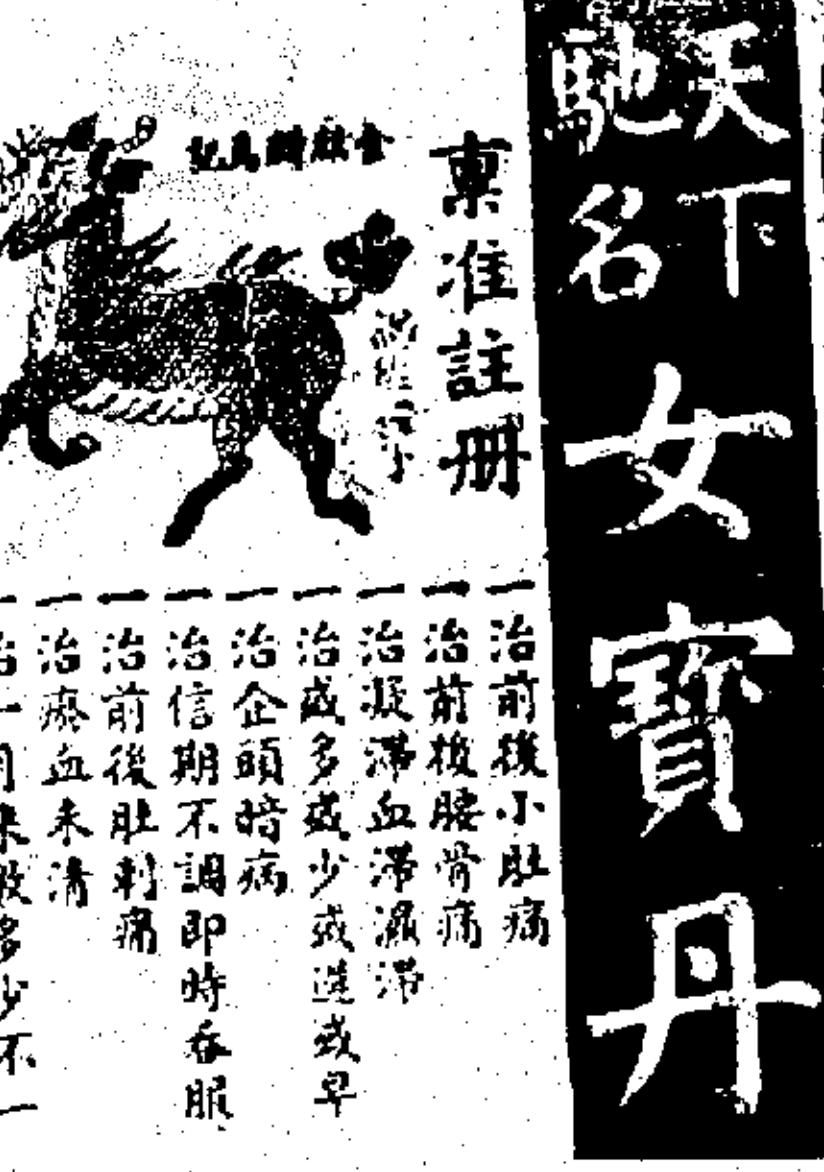 天下馳名
女寶丹
稟准註冊
為記
一治前後小肚痛
一治前後腰骨痛
一治凝滯血滯濕滯
一治或多或少或遲或早
一治企頭暗病
一治信期不調即時吞服
一治前後肚刺痛
一治瘀血未清
一治一月來數多少不一